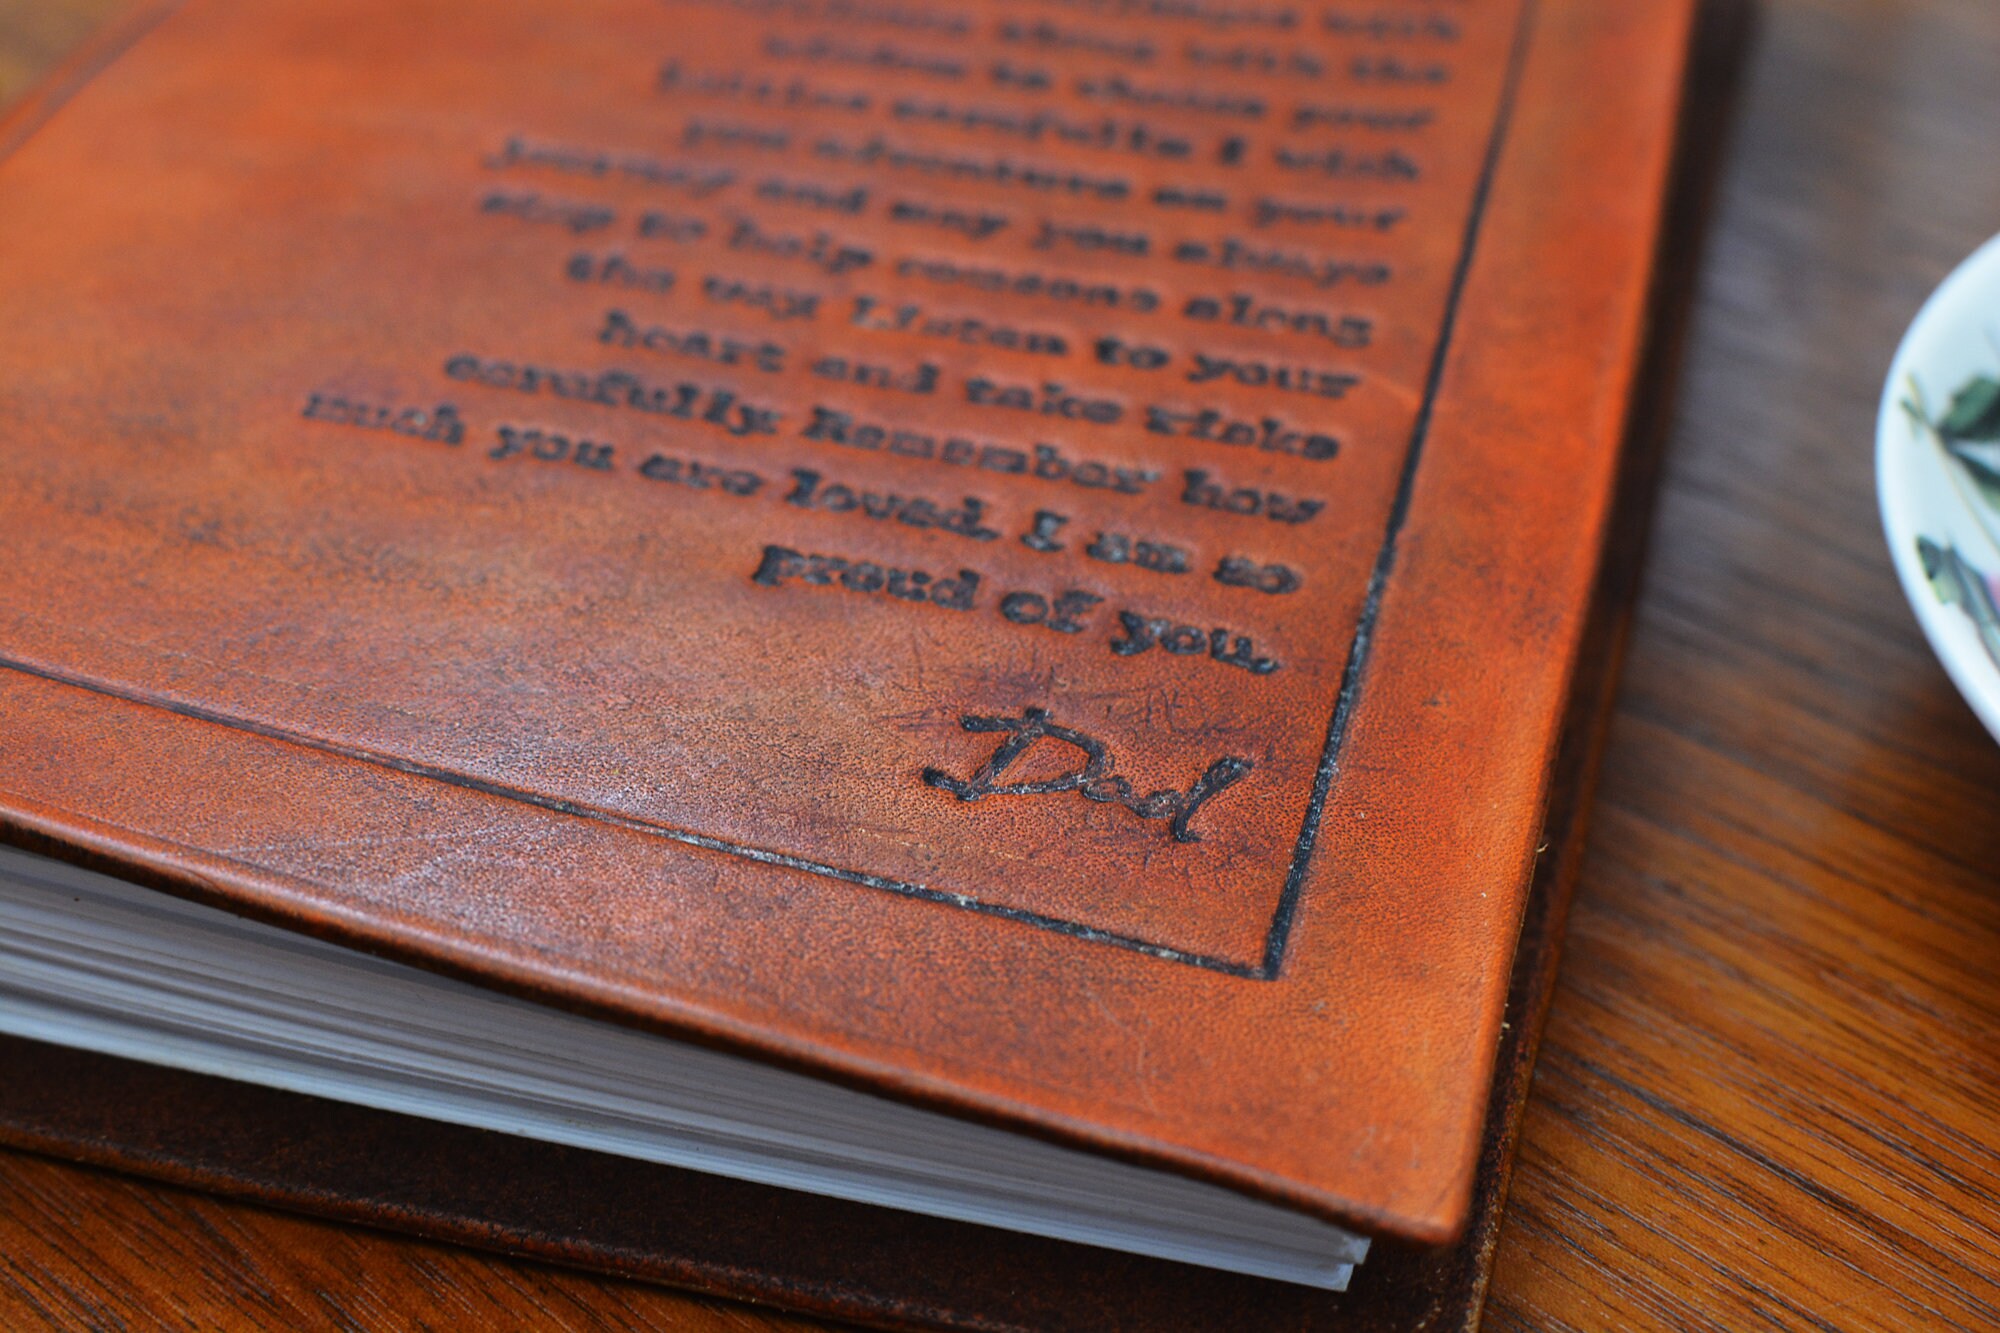 with
about with the
wisdom to choose your
battles carefully I wish
you adventure on your
journey and may you always
stop to help someone along
the way Listen to your
heart and take risks
carefully Remember how
much you are loved. I am so
proud of you,
Dad